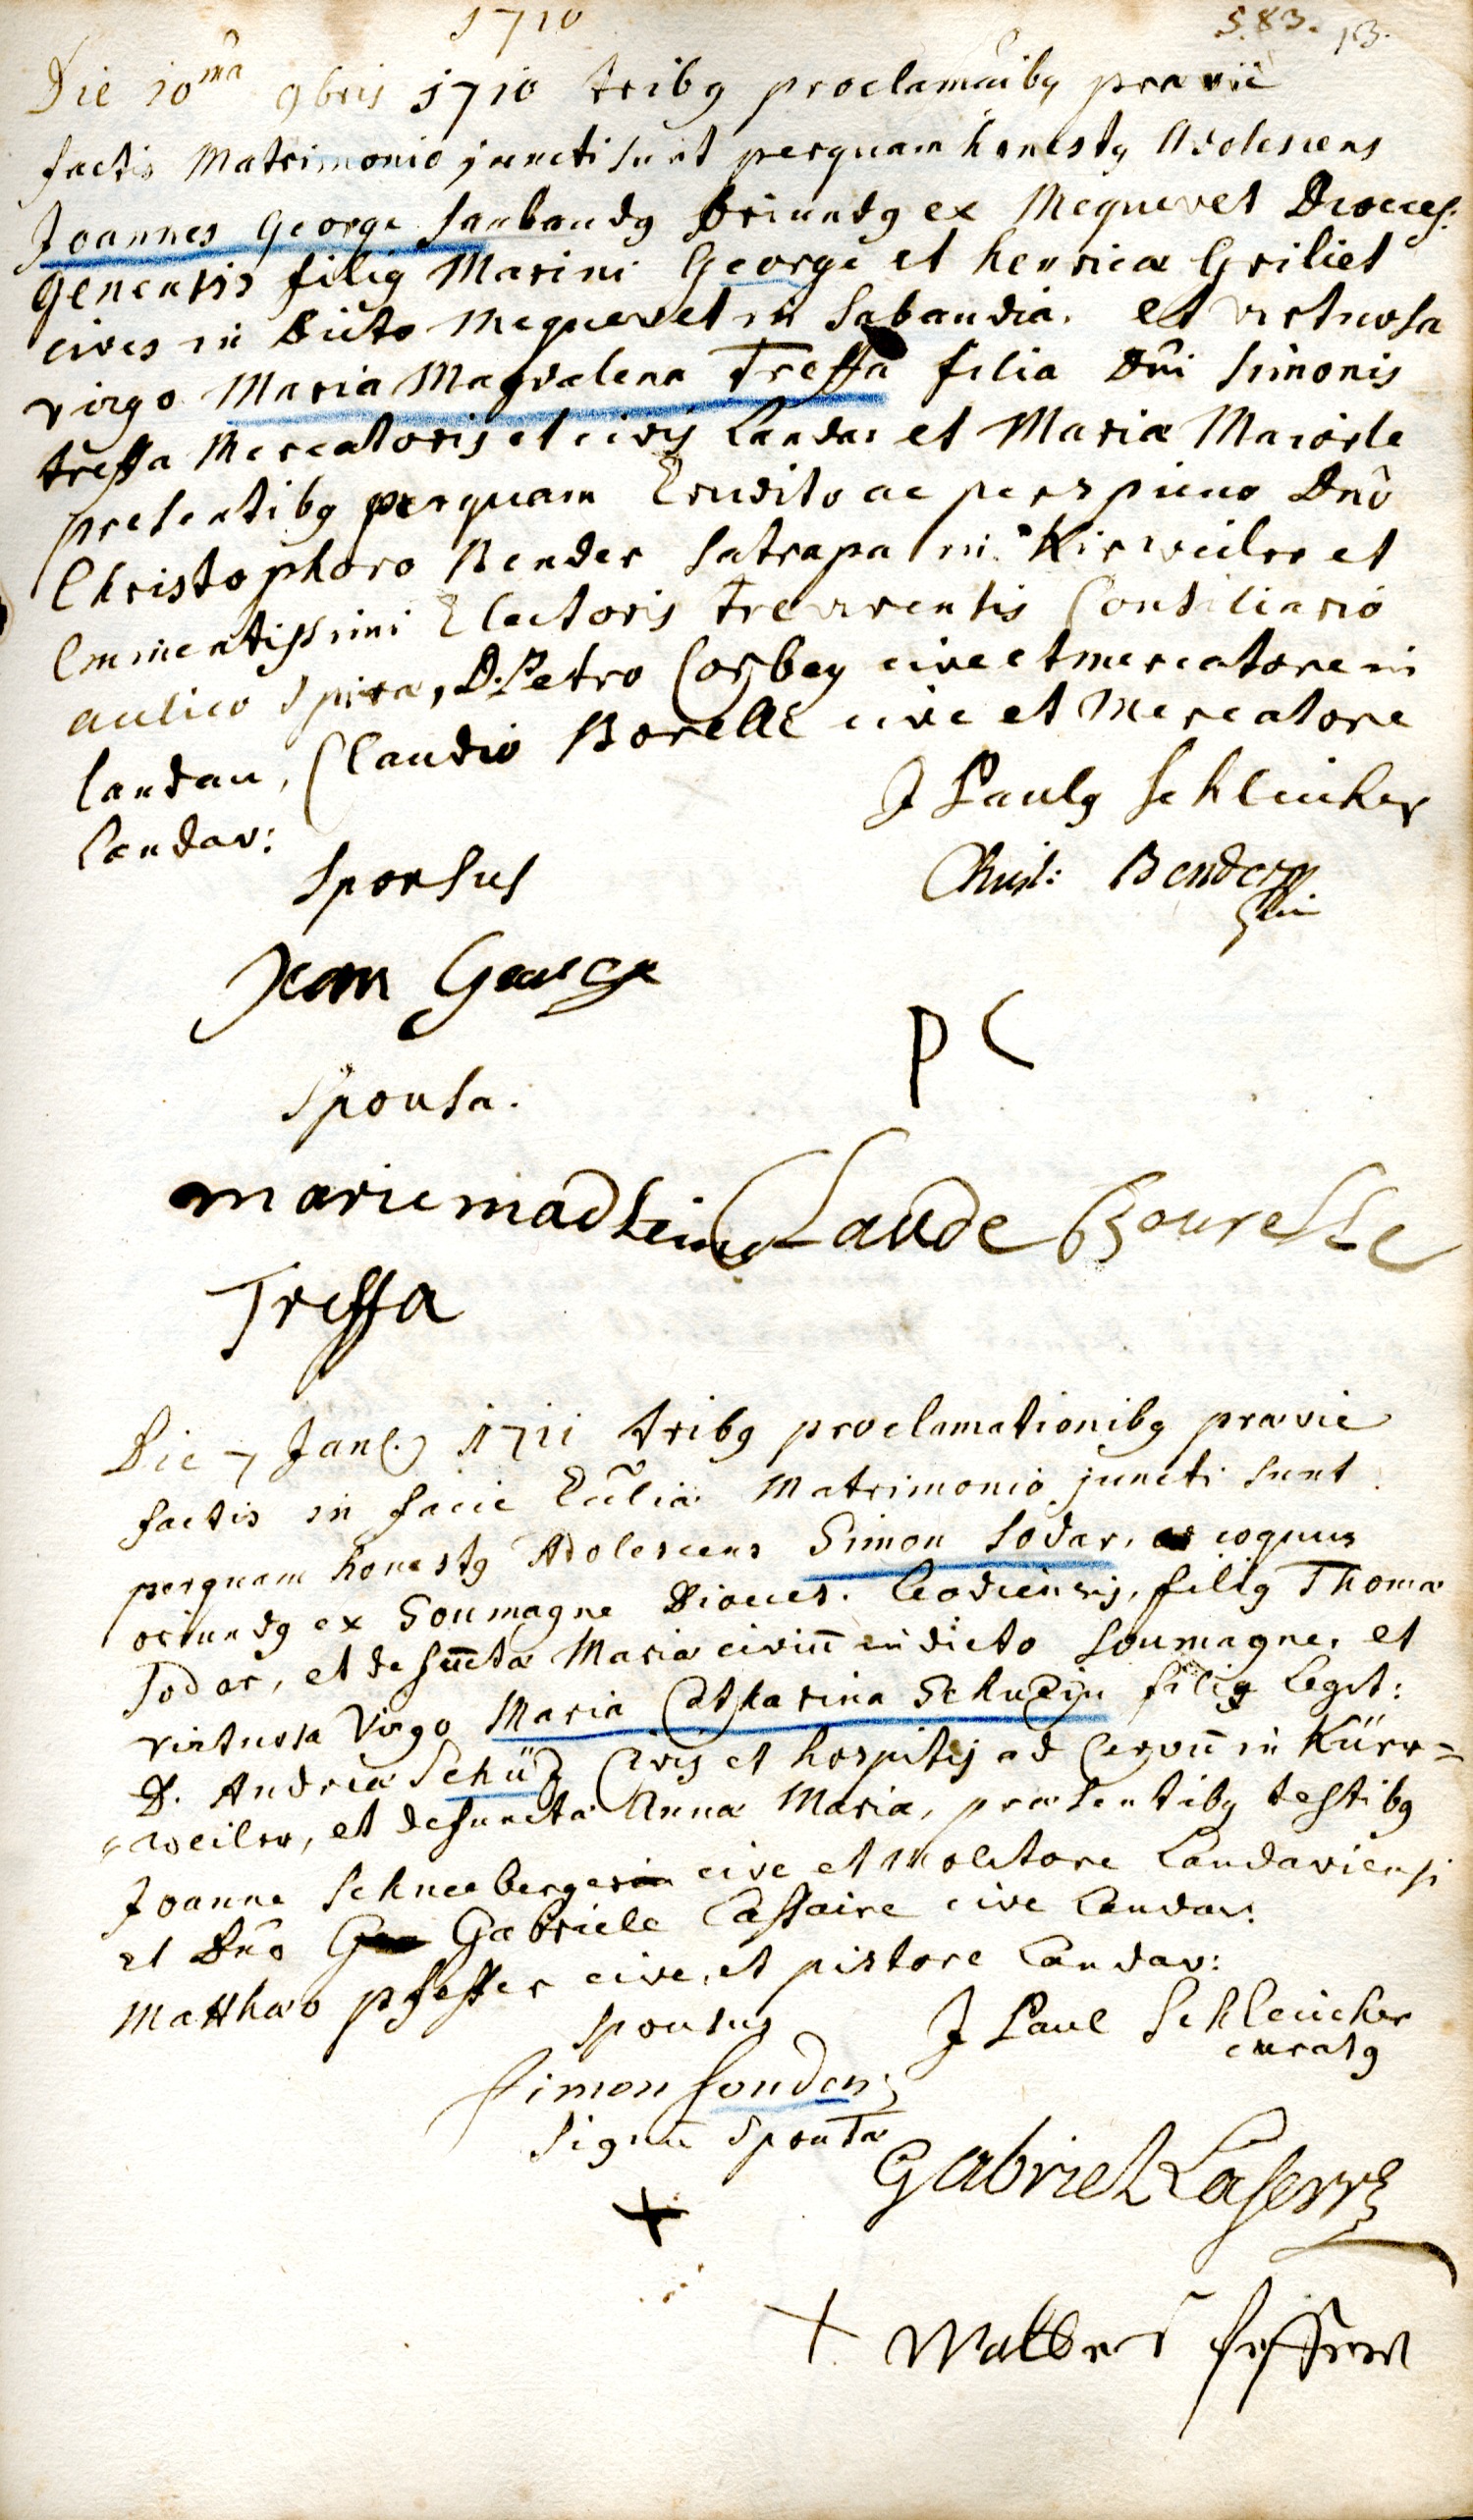 1710
583. 13.
Die 10ma 9bris 1710 tribq proclamāībq praevie
factis Matrimonio juncti sunt perquam honestq Adolescens
Joannes George Saubaudq Oriundq ex Mequevet Dioeces:
Genensis filiq Marini George et henricae Griliet
cives in Dicto Mequevet in Sabaudia. et virtuosa
virgo Maria Magdalena Treffa filia Dn̄i Simonis
treffa Mercatoris et civis Landav et Maria Maiorle
presentibq perquam Erudito ac perspicuo Dnō
Christophoro Bender Satrapa in Kirweiler et
Eminentissimi Electoris Trevirensis Consiliario
aulico Spirae, D. Petro Corbey cive et mercatore in
Landau, Claudio Borelle cive et Mercatore
Landav:
J Paulq Schleicher
Sponsus
Christ: Bender
Jean George
P C
Sponsa.
marie madleine Claude Bourelle
Treffa
Die 7 Jan(.) 1711 tribq proclamationibq praevie
factis in facie Eccl̄iae Matrimonio juncti sunt
perquam honestq Adolescens Simon Sodar, coquus
oriundq ex Soumagne Dioeces. Leodiensis, filiq Thomae
Todar, et defūnctae Mariae civiū in dicto Soumagne, et
virtuosa Virgo Maria Catharina Schuzin filiq Legit:
D. Andreae Schüz Civis et hospitis ad Cervū in Kürr=
=weiler, et defunctae Anna Maria, praesentibq testibq
Joanne Schneeberger cive et Molitore Landaviensi
et Dnō Gabriele Lassaire cive Landav:
Matthaeo pfeffer cive, et pistore Landav:
Sponsus
J Paul Schleicher
curatq
Simon Souden
Signū Sponsae
Gabriel Laserre
+
+